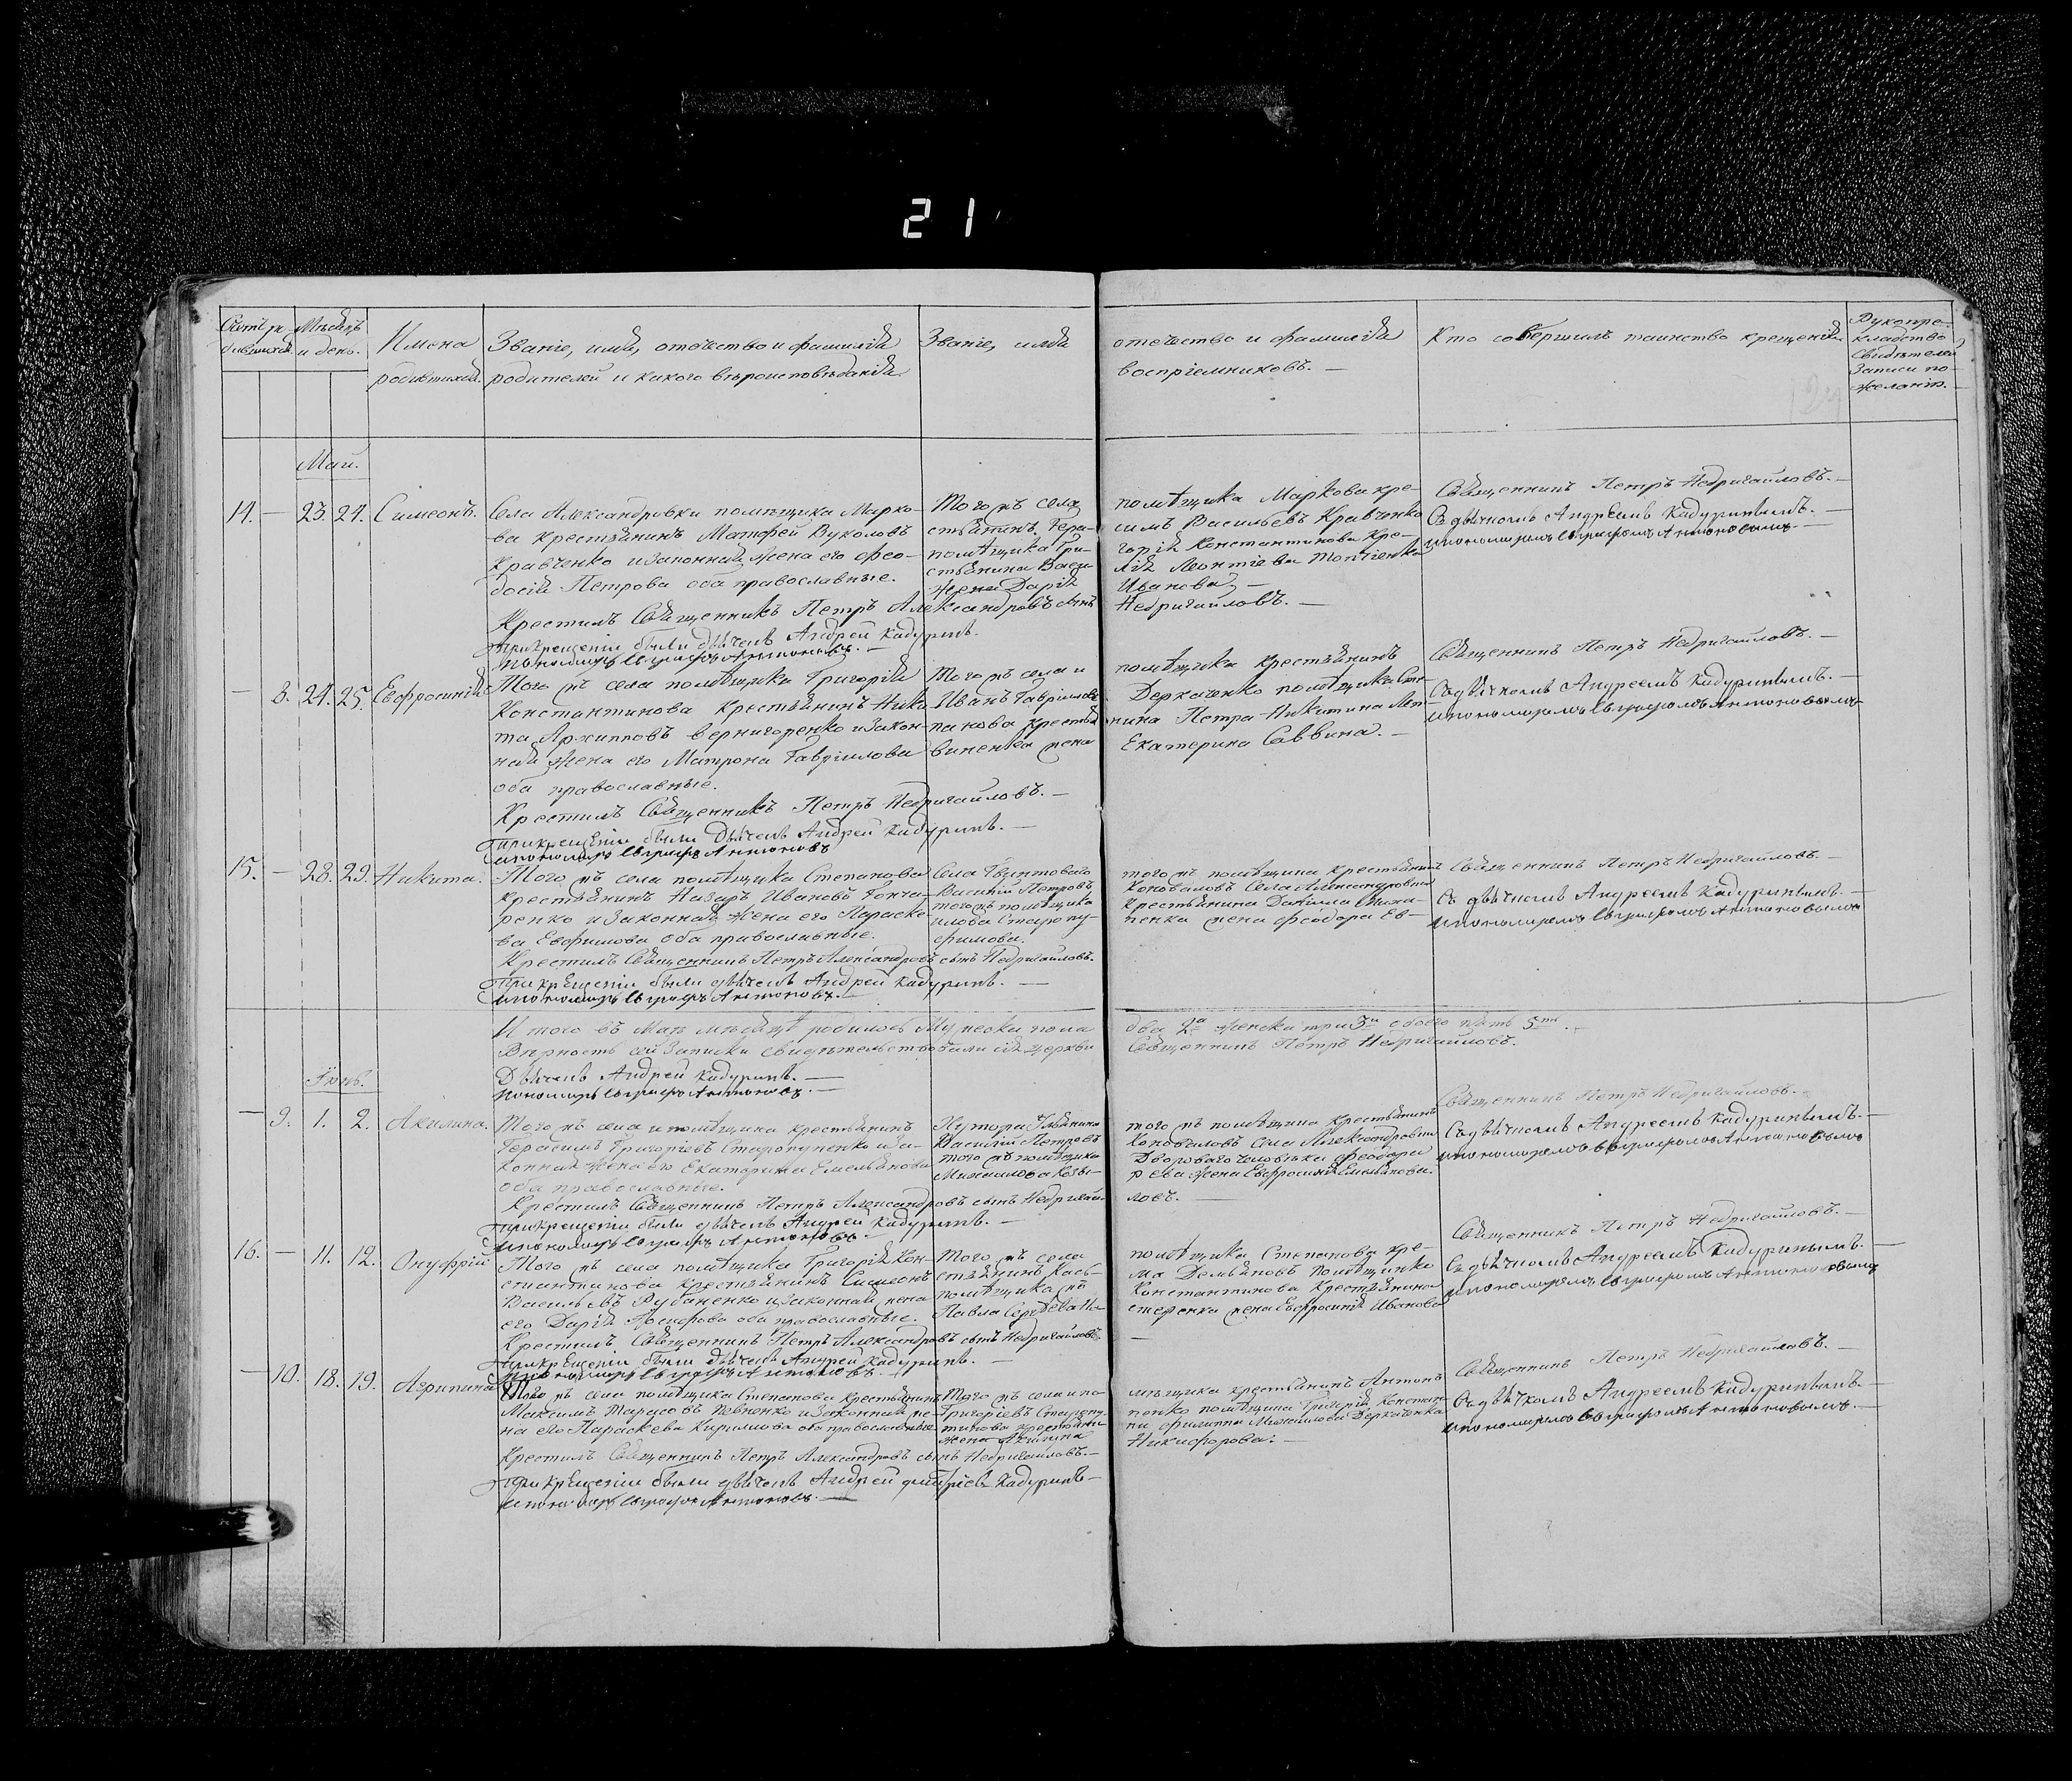 21
Счетъ ро- Мѣсяцъ
дившихся. и день.
Имена
родившихся.
Званіе, имя, отечество и фамилія
родителей и какого вѣроисповѣданія
Званіе, имя
отечество и фамилія
воспріемниковъ. —
Кто совершилъ таинство крещенія
Рукопри-
кладство
свидѣтелей
записи по
желанію.
129
Май.
14. — 23. 24. Симеонъ.
Села Александровки помѣщика Марко-
ва крестьянинъ Матфей Вуколовъ
Кравченко и законная жена его Фео-
досія Петрова оба православные.
Крестилъ Священникъ Петръ Александровъ сынъ
Недригайловъ. —
при крещеніи были дьячекъ Андрей Кадуринъ.
пономарь Евграфъ Антоновъ. —
Того жъ села
помѣщика Маркова кре-
стьянинъ Гера-
симъ Васильевъ Кравченко
помѣщика Гри-
горія Константинова кре-
стьянина Васи-
лія Леонтіева
жена Дарія
Иванова. —
Священникъ Петръ Недригайловъ. —
Съ дьячкомъ Андреемъ Кадуринымъ. —
и пономаремъ Евграфомъ Антоновымъ. —
— 8. 24. 25. Евфросинія
Того жъ села помѣщика Григорія
Константинова крестьянинъ Ники-
та Архиповъ Верниgоренко и закон-
ная жена его Матрона Гавріилова
оба православные.
Крестилъ Священникъ Петръ Недригайловъ. —
при крещеніи были дьячекъ Андрей Кадуринъ. —
и пономарь Евграфъ Антоновъ
Того жъ села и
помѣщика крестьянинъ
Иванъ Гавріиловъ
Деркаченко помѣщика Сте-
панова крестья-
нина Петра Никитина Лит-
виненка жена
Екатерина Саввина. —
Священникъ Петръ Недригайловъ. —
Съ дьячкомъ Андреемъ Кадуринымъ. —
и пономаремъ Евграфомъ Антоновымъ
15. — 28. 29. Никита.
Того жъ села помѣщика Степанова
крестьянинъ Назаръ Ивановъ Гонча-
ренко и законная жена его Параске-
ва Евфимова оба православные.
Крестилъ Священникъ Петръ Александровъ сынъ Недригайловъ.
при крещеніи были дьячекъ Андрей Кадуринъ. —
и пономарь Евграфъ Антоновъ. —
Села
того жъ помѣщика крестьянинъ
Василій Петровъ
Коноваловъ села Александровки
того жъ помѣщика
крестьянина Даніила Миха-
илова Старопу-
пенка жена Феодора Ев-
фимова.
Священникъ Петръ Недригайловъ. —
Съ дьячкомъ Андреемъ Кадуринымъ. —
и пономаремъ Евграфомъ Антоновымъ
Итого въ Маѣ мѣсяцѣ родилось мужеска пола
два 2а женска три 3и обоего пять 5ть. —
Вѣрность сей записки свидѣтельствовали сія церкви
Священникъ Петръ Недригайловъ.
Дьячекъ Андрей Кадуринъ. —
пономарь Евграфъ Антоновъ. —
Іюнь.
— 9. 1. 2. Акилина.
Того жъ села и помѣщика крестьянинъ
Герасимъ Григоріевъ Старопупенко и за-
конная жена его Екатерина Емельянова
оба православные.
Крестилъ Священникъ Петръ Александровъ сынъ Недригай-
ловъ. —
при крещеніи были дьячекъ Андрей Кадуринъ. —
и пономарь Евграфъ Антоновъ. —
Хутора
того жъ помѣщика крестьянинъ
Василій Петровъ
Коноваловъ села Александровки
того жъ помѣщика
двороваго человѣка Феодора
Михаилова
жена Евфросинія Емельянова.
Священникъ Петръ Недригайловъ. —
Съ дьячкомъ Андреемъ Кадуринымъ. —
и пономаремъ Евграфомъ Антоновымъ
16. — 11. 12. Онуфрій
Того жъ села помѣщика Григорія Кон-
стантинова крестьянинъ Симеонъ
Васильевъ Рубаненко и законная жена
его Дарія оба православные.
Крестилъ Священникъ Петръ Александровъ сынъ Недригайловъ.
при крещеніи были дьячекъ Андрей Кадуринъ. —
и пономарь Евграфъ Антоновъ. —
Того жъ села
помѣщика Степанова кре-
стьянинъ Козь-
ма Демьяновъ помѣщика
Константинова крестьянина
Павла
жена Евфросинія Иванова
—
Священникъ Петръ Недригайловъ. —
Съ дьячкомъ Андреемъ Кадуринымъ. —
и пономаремъ Евграфомъ Антоновымъ
— 10. 18. 19. Агрипина
Того жъ села помѣщика Степанова крестьянинъ
Максимъ Тарасовъ Певненко и законная же-
на его Параскева Кирилова оба православные
Крестилъ Священникъ Петръ Александровъ сынъ Недригайловъ. —
при крещеніи были дьячекъ Андрей Дмитріевъ Кадуринъ —
и пономарь Евграфъ Антоновъ. —
Того жъ села и по-
мѣщика крестьянинъ Антонъ
Григоріевъ Старопу-
пенко помѣщика Григорія Констан-
тинова крестьяни-
на Филиппа Михаилова Деркаченка
жена Акилина
Никифорова. —
Священникъ Петръ Недригайловъ. —
Съ дьячкомъ Андреемъ Кадуринымъ. —
и пономаремъ Евграфомъ Антоновымъ. —